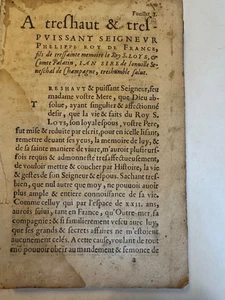 Feuillet 1.
A treshaut & tres-
PVISSANT SEIGNEVR
PHELIPPE ROY DE FRANCE,
fils de tressainte memoire le Roy LOYS, &
Comte Palatin, IAN SIRE de Ionuille Se-
neschal de Champagne, treshumble salut.
TRESHAVT & puissant Seigneur, feu
madame vostre Mere, que Dieu ab-
solue, ayant singulier & affectionné
desir, que la vie & faits du Roy S.
LOYS, son loyal espoux, vostre Pere,
fut mise & reduite par escrit, pour en icelle lisant,
remettre deuant les yeux, la memoire de luy, & de
sa sainte maniere de viure, m'auroit plusieurs
fois requis & admonnesté tresaffectueusement,
de vouloir mettre & coucher par Histoire, la vie
& gestes de son Seigneur & espoux. Sachant tresbien,
que nul autre que moy, ne pouuoit auoir
plus ample & entiere connoissance de sa vie.
Comme celluy qui par l'espace de XXII. ans
aurois suiui, tant en France, qu'Outre-mer, sa
compagnie: & si familierement vescu auec luy,
que ses grands & secrets affaires ne m'estoient
aucunement celés. A cette cause, voulant de tout
mon pouuoir obeir au mandement & semonce de
a